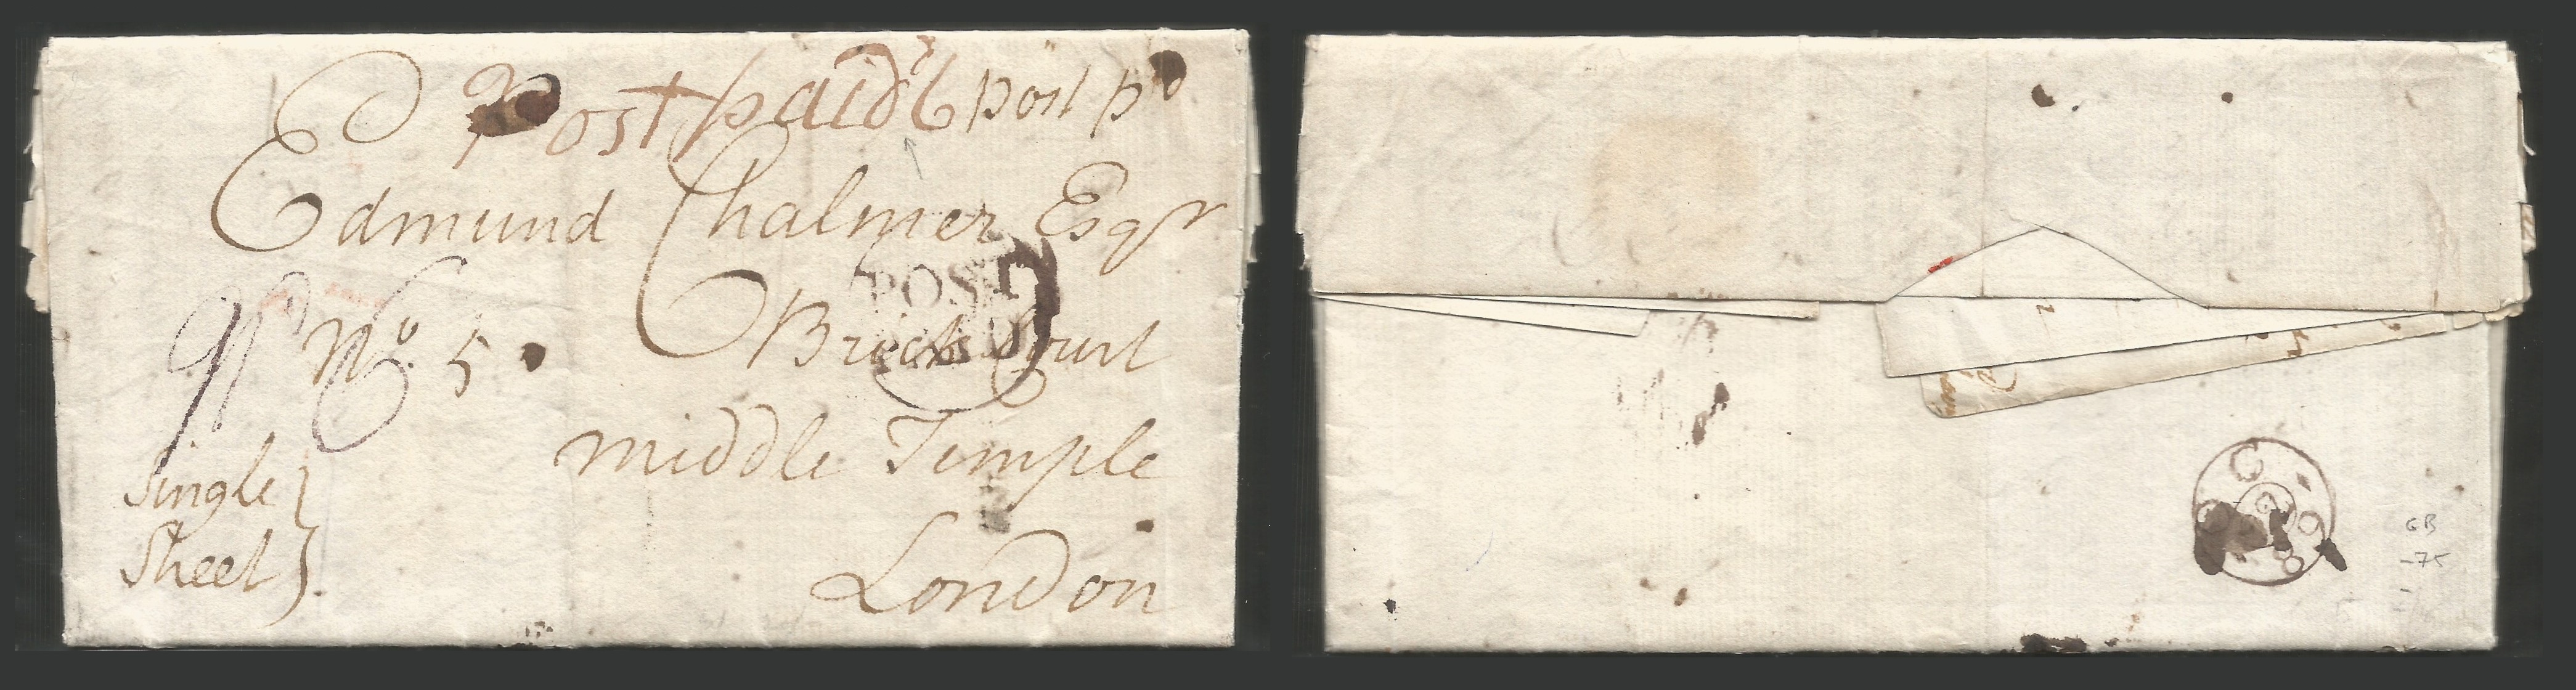 Post paid 6 post pd
Edmund Chalmer Esqr
POST
No. 5
Brick Court
middle Temple
Single
Sheet
London
GB
-75